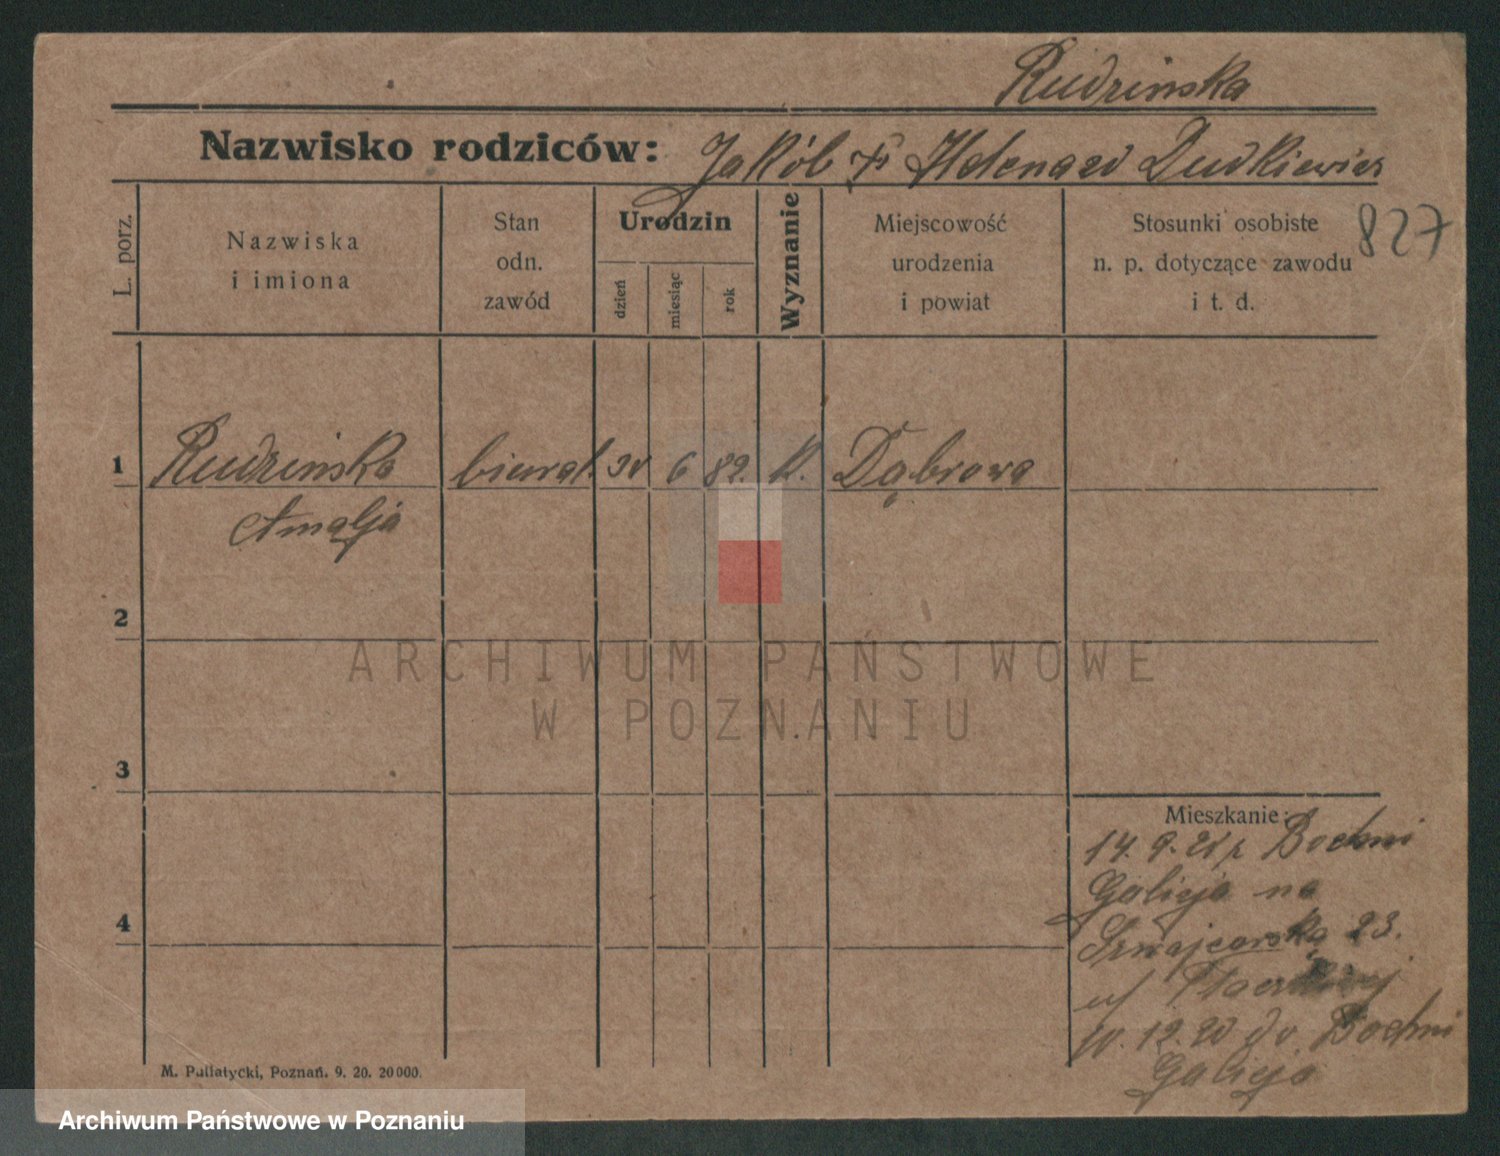 Rudzińska
Nazwisko rodziców: Jakób i Helena zd Dudkiewicz
827
L. porz.
Nazwiska
i imiona
Stan
odn.
zawód
Urodzin
dzień
miesiąc
rok
Wyznanie
Miejscowość
urodzenia
i powiat
Stosunki osobiste
n. p. dotyczące zawodu
i t. d.
1 Rudzińska 6 82. k. Dąbrowa
Amalja
2
ARCHIWUM PAŃSTWOWE
W POZNANIU
3
Mieszkanie:
14. 9. z Bochni
Galicja na
23.
4
12. 20 do Bochni
Galicja
M. Pullatycki, Poznań. 9. 20. 20 000.
Archiwum Państwowe w Poznaniu